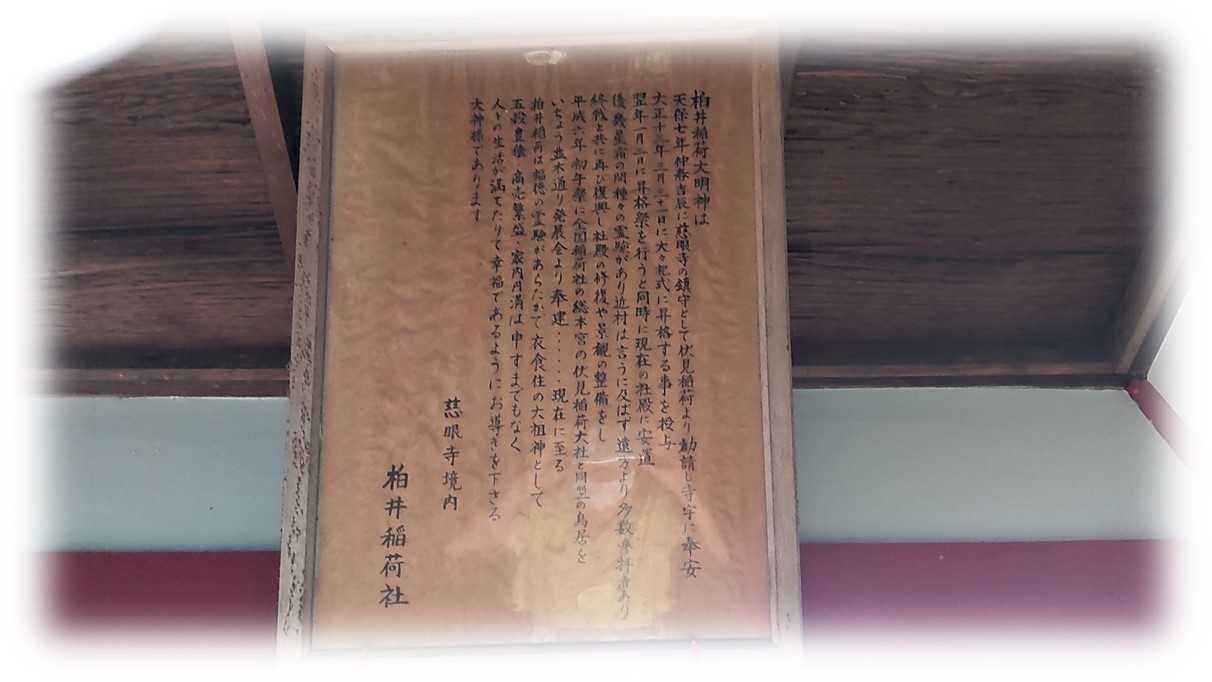 柏井稲荷大明神は
天保七年仲春吉辰に慈眼寺の鎮守として伏見稲荷より勧請し寺宇に奉安
大正十三年三月三十一日に大々起式に昇格する事を授与
翌年一月二日に昇格祭を行うと同時に現在の社殿に安置
優幾星霜の間種々の霊験があり近村は言うに及ばず遠方より多数参拝者あり
終戦と共に再び復興し社殿の修復や景観の整備をし
平成六年初午祭に全国稲荷社の総本宮の伏見稲荷大社と同型の鳥居を
いちょう並木通り発展会より奉建・・・・・現在に至る
柏井稲荷は稲徳の霊験があらたかで衣食住の大祖神として
五穀豊穣・商売繁盛・家内円満は申すまでもなく
人々の生活が満てたりて幸福であるようにお導きを下さる
大神様であります
慈眼寺境内
柏井稲荷社